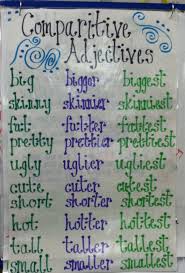 Comparitive
Adjectives
big bigger biggest
skinny skinnier skinniest
fat fatter fattest
pretty prettier prettiest
ugly uglier ugliest
cute cuter cutest
short shorter shortest
hot hotter hottest
tall taller tallest
small smaller smallest